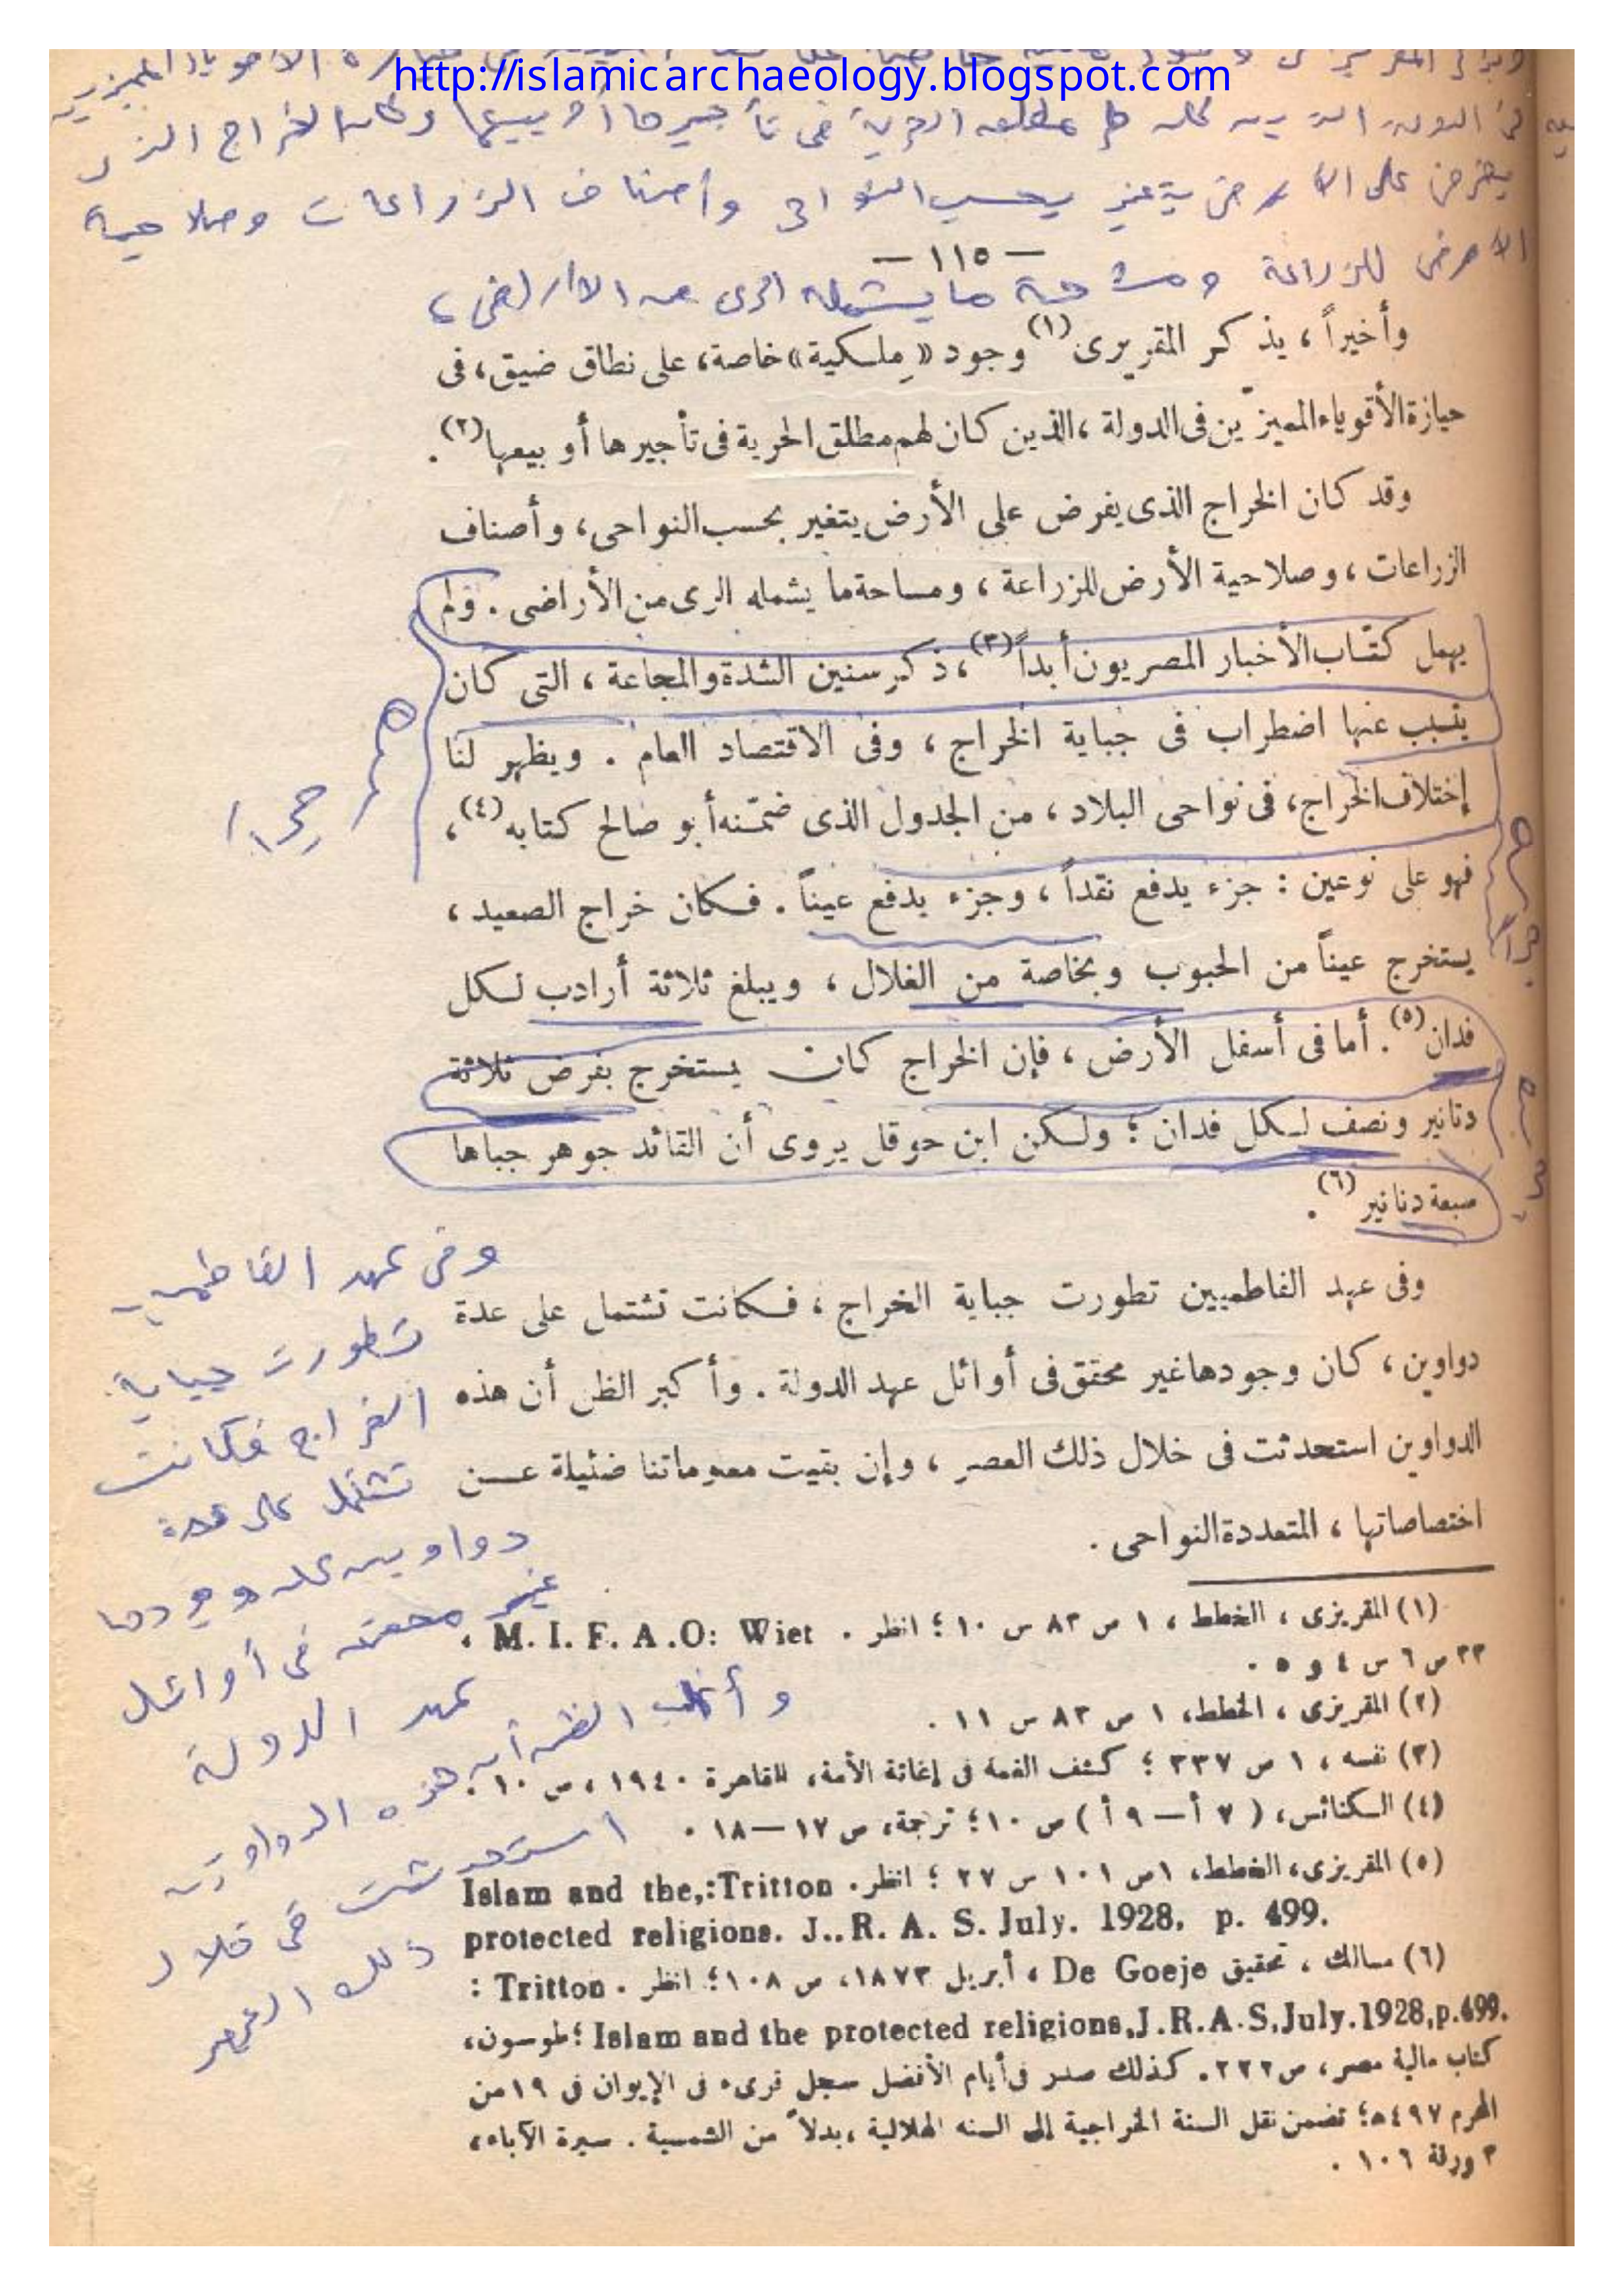 http://islamicarchaeology.blogspot.com
فى الدولة الذين كان لهم مطلق الحرية فى تأجيرها أو بيعها وكان الخراج الذى
يفرض على الأرض يتغير بحسب النواحى وأصناف الزراعات وصلاحية
الأرض للزراعة ومساحة ما يشمله الرى من الأراضى ،
— ١١٥ —
وأخيراً ، يذكر المقريزى (١) وجود « مِلكية » خاصة ، على نطاق ضيق ، فى
حيازة الأقوياء المميزّين فى الدولة ، الذين كان لهم مطلق الحرية فى تأجيرها أو بيعها (٢) .
وقد كان الخراج الذى يفرض على الأرض يتغير بحسب النواحى ، وأصناف
الزراعات ، وصلاحية الأرض للزراعة ، ومساحة ما يشمله الرى من الأراضى . ولم
يهمل كتّاب الأخبار المصريون أبداً (٣) ، ذكر سنين الشدة والمجاعة ، التى كان
يتسبب عنها اضطراب فى جباية الخراج ، وفى الاقتصاد العام . ويظهر لنا
إختلاف الخراج ، فى نواحى البلاد ، من الجدول الذى ضمّنه أبو صالح كتابه (٤) ،
فهو على نوعين : جزء يدفع نقداً ، وجزء يدفع عيناً . فكان خراج الصعيد ،
يستخرج عيناً من الحبوب وبخاصة من الغلال ، ويبلغ ثلاثة أرادب لكل
فدان (٥) . أما فى أسفل الأرض ، فإن الخراج كان يستخرج بفرض ثلاثة
دنانير ونصف لكل فدان ؛ ولكن ابن حوقل يروى أن القائد جوهر جباها
سبعة دنانير (٦) .
وفى عهد الفاطميين تطورت جباية الخراج ، فكانت تشتمل على عدة
دواوين ، كان وجودها غير محقق فى أوائل عهد الدولة . وأكبر الظن أن هذه
الدواوين استحدثت فى خلال ذلك العصر ، وإن بقيت معلوماتنا ضئيلة عن
اختصاصاتها ، المتعددة النواحى .
وفى عهد الفاطميين
تطورت جباية
الخراج فكانت
تشتمل على عدة
دواوين كان وجودها
غير محقق فى أوائل
عهد الدولة
وأغلب الظن أن
هذه الدواوين
استحدثت فى خلال
ذلك العصر
(١) المقريزى ، الخطط ، ١ ص ٨٣ س ١٠ ؛ انظر . M. I. F. A .O: Wiet ،
٣٣ ص ٦ س ٤ و ٥ .
(٢) المقريزى ، الخطط ، ١ ص ٨٣ س ١١ .
(٣) نفسه ، ١ ص ٣٣٧ ؛ كشف الغمة فى إغاثة الأمة ، القاهرة ١٩٤٠ ، ص ١٠ .
(٤) الكنائس ، ( ٧ أ — ٩ أ ) ص ١٠ ؛ ترجمة ، ص ١٧ — ١٨ .
(٥) المقريزى ، الخطط ، ١ ص ١٠١ س ٢٧ ؛ انظر . Islam and the,:Tritton
protected religions. J..R. A. S. July. 1928. p. 499.
(٦) مسالك ، تحقيق De Goeje ، أبريل ١٨٧٣ ، ص ١٠٨ ؛ انظر . Tritton :
Islam and the protected religions,J.R.A.S,July.1928,p.499. ؛ طوسون ،
كتاب مالية مصر ، ص ٢٢٢ . كذلك صدر فى أيام الأفضل سجل قرىء فى الإيوان فى ١٩ من
المحرم ٤٩٧ه‍ ؛ تضمن نقل السنة الخراجية إلى السنه الهلالية ، بدلاً من الشمسية . سيرة الآباء ،
٣ ورقة ١٠٦ .